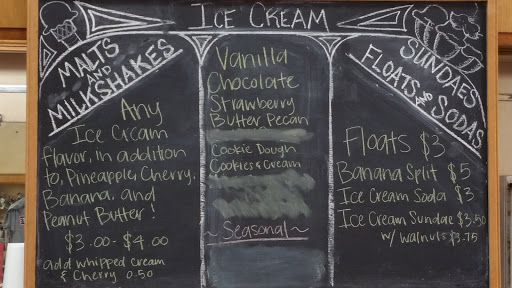 ICE CREAM
MALTS
AND
MILKSHAKES
Any
Ice Cream
flavor, in addition
to, Pineapple, Cherry,
Banana, and
Peanut Butter!
$3.00 - $4.00
add whipped cream
& Cherry 0.50
Vanilla
Chocolate
Strawberry
Butter Pecan
Cookie Dough
Cookies & Cream
~ Seasonal ~
SUNDAES
FLOATS AND SODAS
Floats $3
Banana Split $5
Ice Cream Soda $3
Ice Cream Sundae $3.50
w/ walnuts $3.75